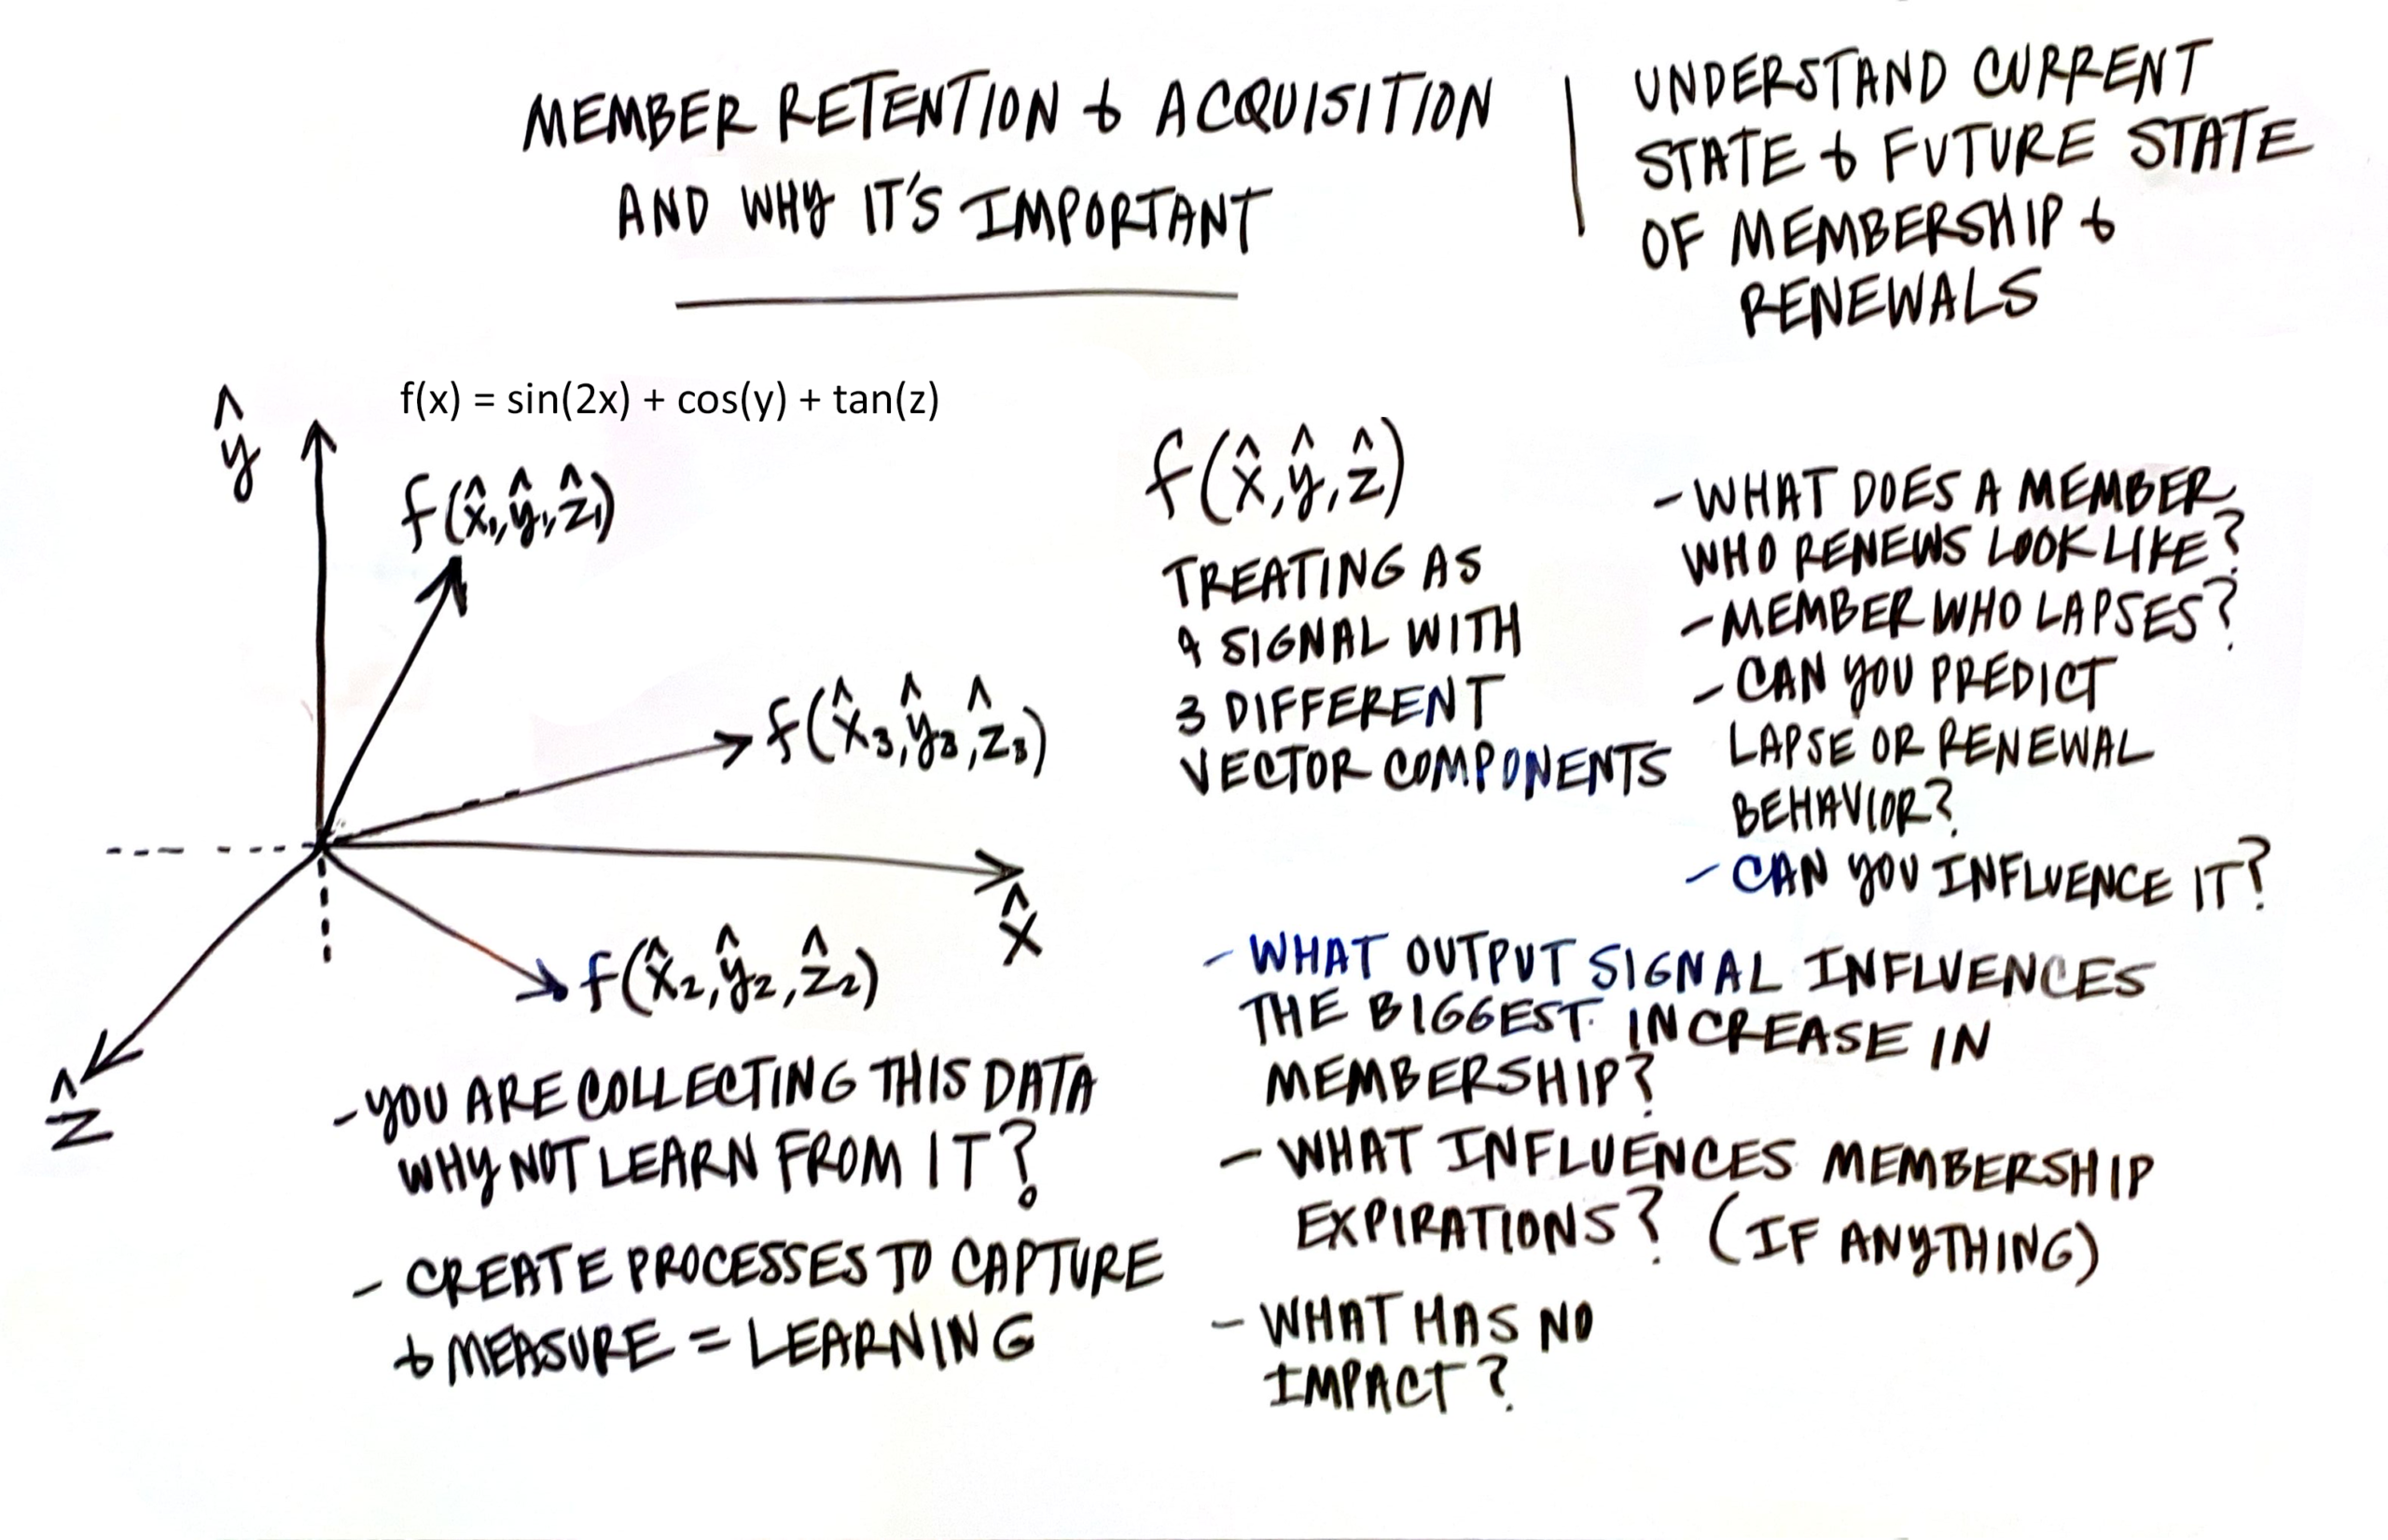 MEMBER RETENTION & ACQUISITION
AND WHY IT'S IMPORTANT
UNDERSTAND CURRENT
STATE & FUTURE STATE
OF MEMBERSHIP &
RENEWALS
f(x) = sin(2x) + cos(y) + tan(z)
ŷ
f(x̂₁,ŷ₁,ẑ₁)
f(x̂₃,ŷ₃,ẑ₃)
x̂
f(x̂₂,ŷ₂,ẑ₂)
ẑ
- YOU ARE COLLECTING THIS DATA
WHY NOT LEARN FROM IT?
- CREATE PROCESSES TO CAPTURE
& MEASURE = LEARNING
f(x̂,ŷ,ẑ)
TREATING AS
A SIGNAL WITH
3 DIFFERENT
VECTOR COMPONENTS
- WHAT DOES A MEMBER
WHO RENEWS LOOK LIKE?
- MEMBER WHO LAPSES?
- CAN YOU PREDICT
LAPSE OR RENEWAL
BEHAVIOR?
- CAN YOU INFLUENCE IT?
- WHAT OUTPUT SIGNAL INFLUENCES
THE BIGGEST INCREASE IN
MEMBERSHIP?
- WHAT INFLUENCES MEMBERSHIP
EXPIRATIONS? (IF ANYTHING)
- WHAT HAS NO
IMPACT?